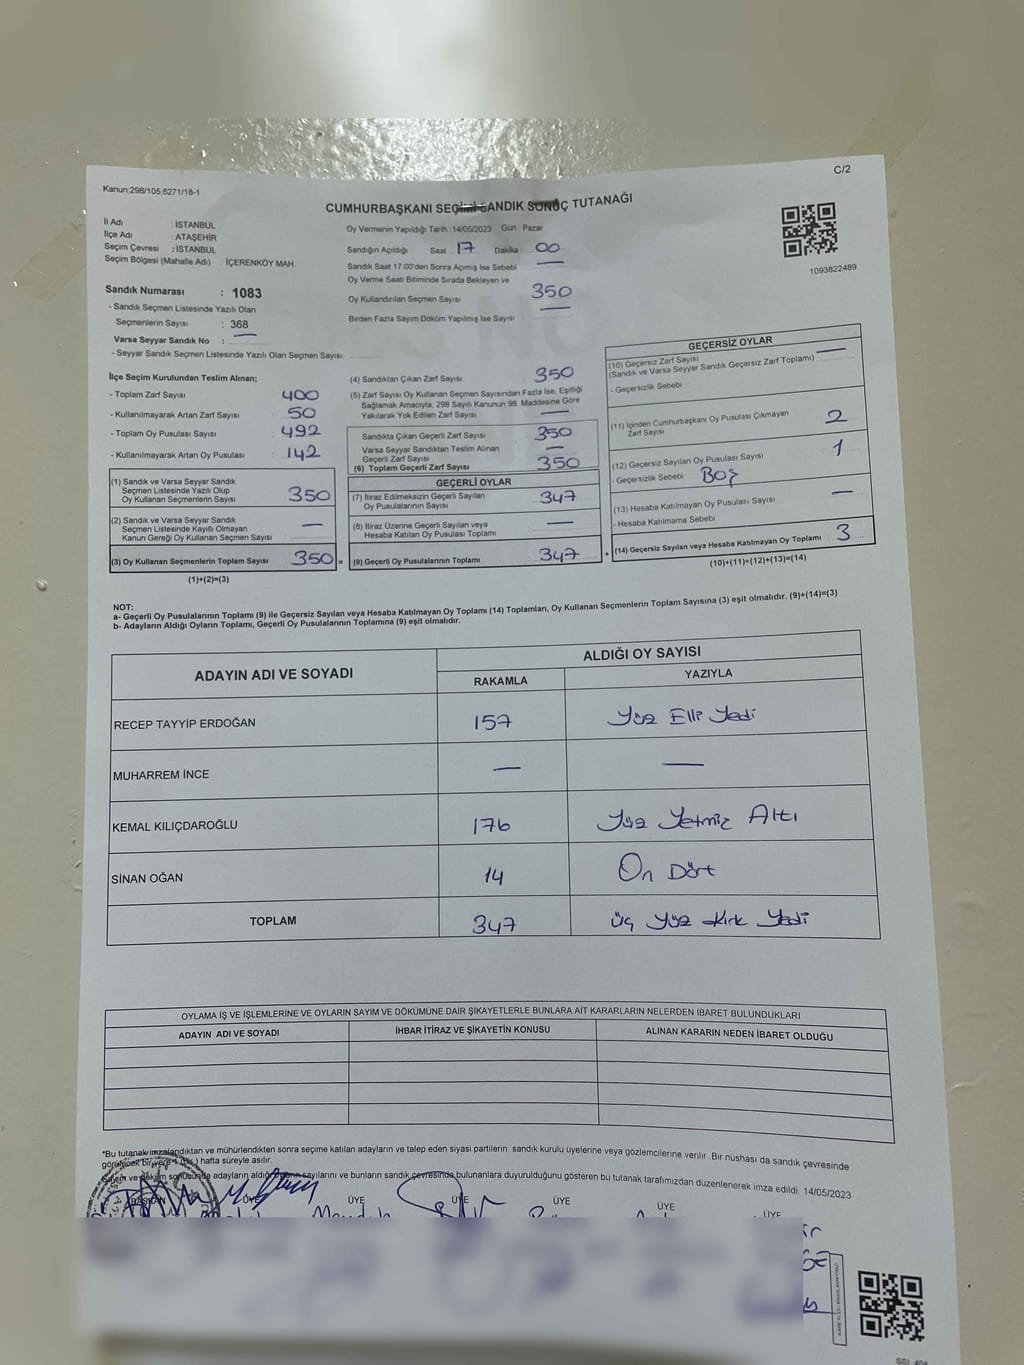 C/2
Kanun:298/105,6271/18-1
CUMHURBAŞKANI SEÇİMİ SANDIK SONUÇ TUTANAĞI
İl Adı : İSTANBUL
İlçe Adı : ATAŞEHİR
Seçim Çevresi : İSTANBUL
Seçim Bölgesi (Mahalle Adı) : İÇERENKÖY MAH.
Sandık Numarası : 1083
- Sandık Seçmen Listesinde Yazılı Olan
Seçmenlerin Sayısı : 368
Varsa Seyyar Sandık No : —
- Seyyar Sandık Seçmen Listesinde Yazılı Olan Seçmen Sayısı:
Oy Vermenin Yapıldığı Tarih 14/05/2023 Gün Pazar
Sandığın Açıldığı Saat 17 Dakika 00
Sandık Saat 17:00'den Sonra Açımış İse Sebebi —
Oy Verme Saati Bitiminde Sırada Bekleyen ve
Oy Kullandırılan Seçmen Sayısı 350
Birden Fazla Sayım Döküm Yapılmış İse Sayısı —
1093822489
İlçe Seçim Kurulundan Teslim Alınan;
- Toplam Zarf Sayısı 400
- Kullanılmayarak Artan Zarf Sayısı 50
- Toplam Oy Pusulası Sayısı 492
- Kullanılmayarak Artan Oy Pusulası 142
(1) Sandık ve Varsa Seyyar Sandık
Seçmen Listesinde Yazılı Olup
Oy Kullanan Seçmenlerin Sayısı 350
(2) Sandık ve Varsa Seyyar Sandık
Seçmen Listesinde Kayıtlı Olmayan
Kanun Gereği Oy Kullanan Seçmen Sayısı —
(3) Oy Kullanan Seçmenlerin Toplam Sayısı 350 =
(1)+(2)=(3)
(4) Sandıktan Çıkan Zarf Sayısı 350
(5) Zarf Sayısı Oy Kullanan Seçmen Sayısından Fazla İse, Eşitliği
Sağlamak Amacıyla, 298 Sayılı Kanunun 98. Maddesine Göre
Yakılarak Yok Edilen Zarf Sayısı —
Sandıkta Çıkan Geçerli Zarf Sayısı 350
Varsa Seyyar Sandıktan Teslim Alınan
Geçerli Zarf Sayısı —
(6) Toplam Geçerli Zarf Sayısı 350
GEÇERLİ OYLAR
(7) İtiraz Edilmeksizin Geçerli Sayılan
Oy Pusulalarının Sayısı 347
(8) İtiraz Üzerine Geçerli Sayılan veya
Hesaba Katılan Oy Pusulası Toplamı —
(9) Geçerli Oy Pusulalarının Toplamı 347 +
GEÇERSİZ OYLAR
(10) Geçersiz Zarf Sayısı —
(Sandık ve Varsa Seyyar Sandık Geçersiz Zarf Toplamı)
- Geçersizlik Sebebi
(11) İçinden Cumhurbaşkanı Oy Pusulası Çıkmayan
Zarf Sayısı 2
(12) Geçersiz Sayılan Oy Pusulası Sayısı 1
- Geçersizlik Sebebi Boş
(13) Hesaba Katılmayan Oy Pusulası Sayısı —
- Hesaba Katılmama Sebebi
(14) Geçersiz Sayılan veya Hesaba Katılmayan Oy Toplamı 3
(10)+(11)+(12)+(13)=(14)
NOT:
a- Geçerli Oy Pusulalarının Toplamı (9) ile Geçersiz Sayılan veya Hesaba Katılmayan Oy Toplamı (14) Toplamları, Oy Kullanan Seçmenlerin Toplam Sayısına (3) eşit olmalıdır. (9)+(14)=(3)
b- Adayların Aldığı Oyların Toplamı, Geçerli Oy Pusulalarının Toplamına (9) eşit olmalıdır.
ADAYIN ADI VE SOYADI ALDIĞI OY SAYISI
RAKAMLA YAZIYLA
RECEP TAYYİP ERDOĞAN 157 Yüz Elli Yedi
MUHARREM İNCE — —
KEMAL KILIÇDAROĞLU 176 Yüz Yetmiş Altı
SİNAN OĞAN 14 On Dört
TOPLAM 347 Üç Yüz Kırk Yedi
OYLAMA İŞ VE İŞLEMLERİNE VE OYLARIN SAYIM VE DÖKÜMÜNE DAİR ŞİKAYETLERLE BUNLARA AİT KARARLARIN NELERDEN İBARET BULUNDUKLARI
ADAYIN ADI VE SOYADI İHBAR İTİRAZ VE ŞİKAYETİN KONUSU ALINAN KARARIN NEDEN İBARET OLDUĞU
*Bu tutanak imzalandıktan ve mühürlendikten sonra seçime katılan adayların ve talep eden siyasi partilerin sandık kurulu üyelerine veya gözlemcilerine verilir. Bir nüshası da sandık çevresinde
görülecek bir yere 1 (Bir) hafta süreyle asılır.
Sayım ve döküm sonucunda adayların aldığı sayılarını ve bunların sandık çevresinde bulunanlara duyurulduğunu gösteren bu tutanak tarafımızdan düzenlenerek imza edildi. 14/05/2023
BAŞKAN ÜYE ÜYE ÜYE ÜYE ÜYE ÜYE